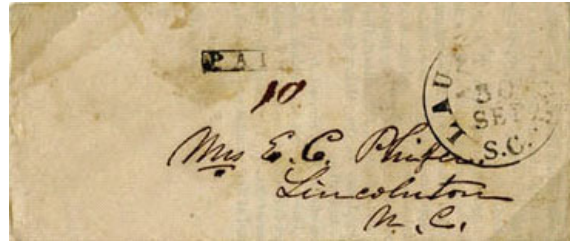 PAI
10
LAU
30
SEP
S.C.
Mrs E. C. Phifer
Lincolnton
N. C.